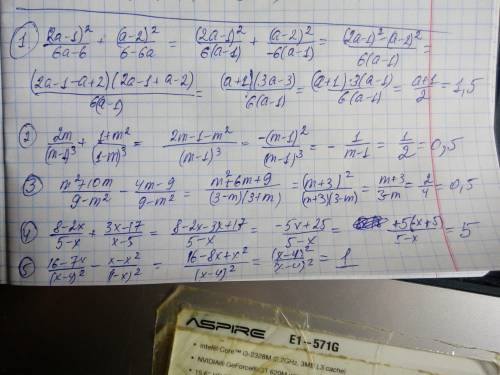 1 (2a-1)²/(6a-6) + (a-2)²/(6-6a) = (2a-1)²/(6(a-1)) + (a-2)²/(-6(a-1)) = ((2a-1)²-(a-2)²)/(6(a-1)) =
((2a-1-a+2)(2a-1+a-2))/(6(a-1)) = ((a+1)(3a-3))/(6(a-1)) = ((a+1)·3(a-1))/(6(a-1)) = (a+1)/2 = 1,5
2 2m/(m-1)³ + (1+m²)/(1-m)³ = (2m-1-m²)/(m-1)³ = -(m-1)²/(m-1)³ = -1/(m-1) = 1/2 = 0,5
3 (m²+10m)/(9-m²) - (4m-9)/(9-m²) = (m²+6m+9)/((3-m)(3+m)) = (m+3)²/((m+3)(3-m)) = (m+3)/(3-m) = 2/4 = 0,5
4 (8-2x)/(5-x) + (3x-17)/(x-5) = (8-2x-3x+17)/(5-x) = (-5x+25)/(5-x) = +5(-x+5)/(5-x) = 5
5 (16-7x)/(x-4)² - (x-x²)/(4-x)² = (16-8x+x²)/(x-4)² = (x-4)²/(x-4)² = 1
ASPIRE E1-571G
• Intel® Core™ i3-2328M (2.2GHz, 3MB L3 cache)
• NVIDIA® GeForce®